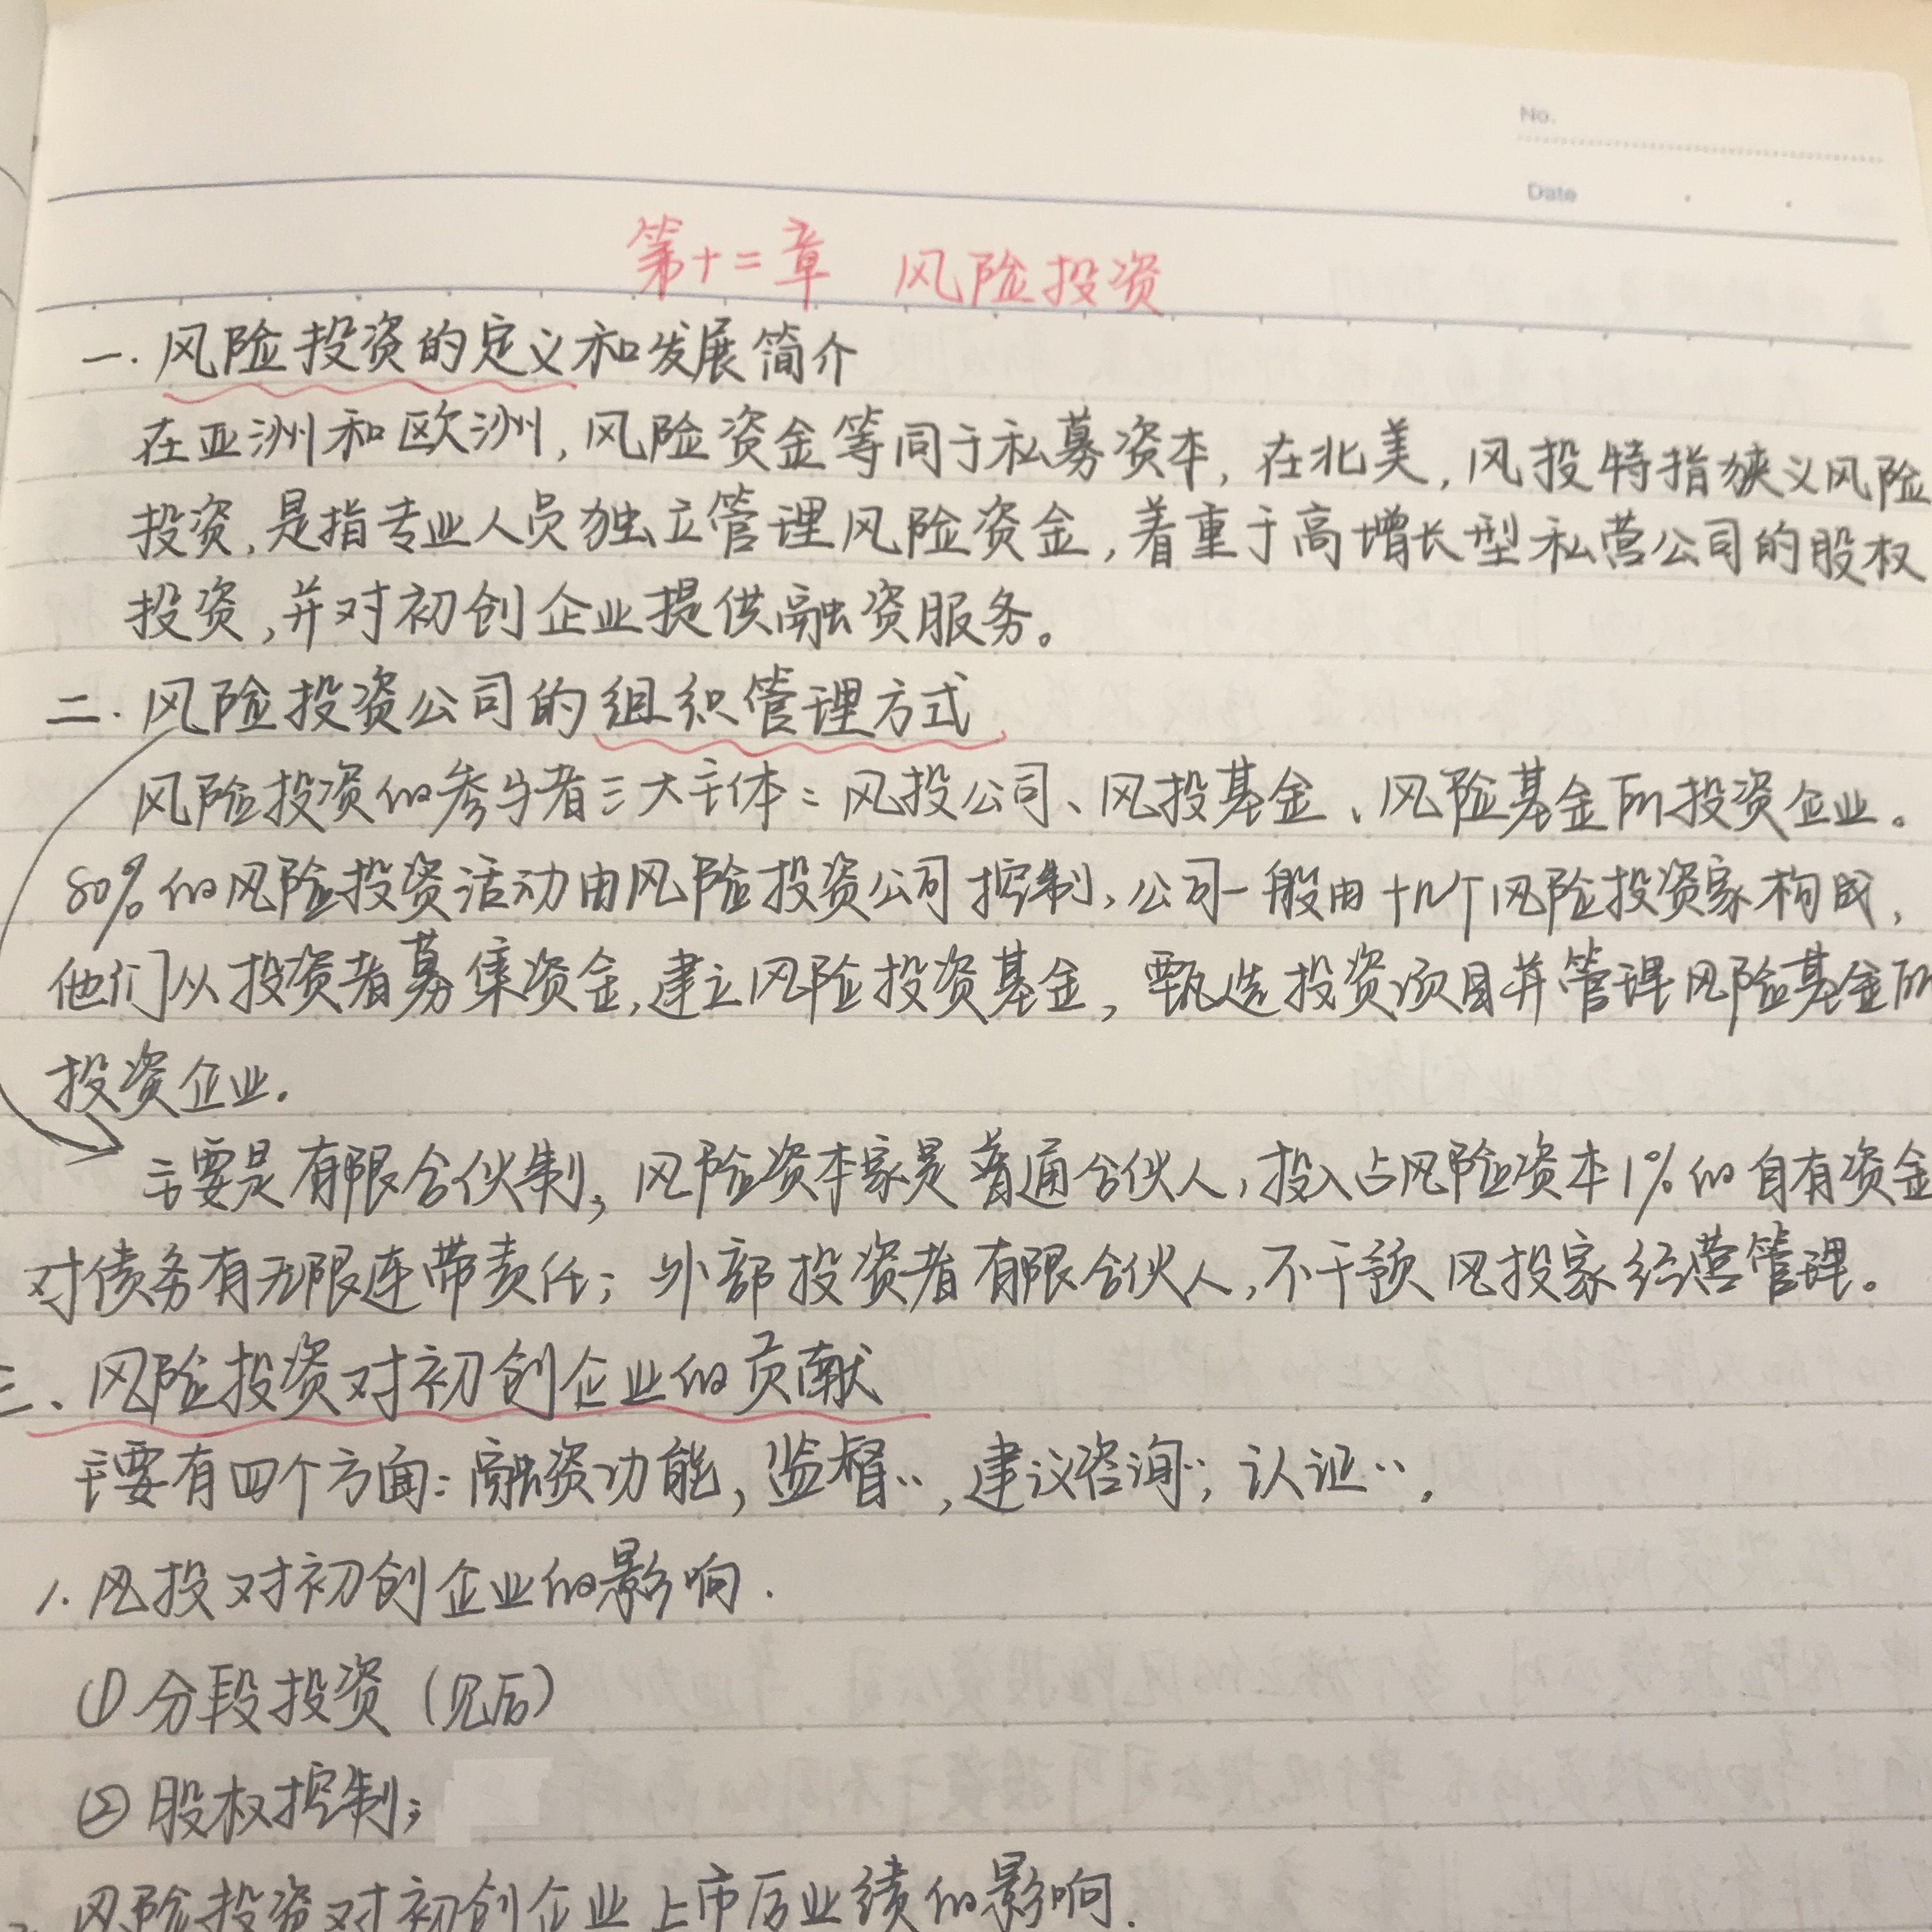 No.
Date
第十二章 风险投资
一.风险投资的定义和发展简介
在亚洲和欧洲,风险资金等同于私募资本,在北美,风投特指狭义风险
投资,是指专业人员独立管理风险资金,着重于高增长型私营公司的股权
投资,并对初创企业提供融资服务。
二.风险投资公司的组织管理方式
风险投资的参与者三大主体:风投公司、风投基金、风险基金所投资企业。
80%的风险投资活动由风险投资公司控制,公司一般由十几个风险投资家构成,
他们从投资者募集资金,建立风险投资基金,甄选投资项目并管理风险基金所
投资企业.
主要是有限合伙制,风险资本家是普通合伙人,投入占风险资本1%的自有资金
对债务有无限连带责任;外部投资者有限合伙人,不干预风投家经营管理。
三、风险投资对初创企业的贡献
主要有四个方面:融资功能,监督‥,建议咨询‥,认证‥.
1.风投对初创企业的影响.
①分段投资(见后)
②股权控制;
风险投资对初创企业上市后业绩的影响.